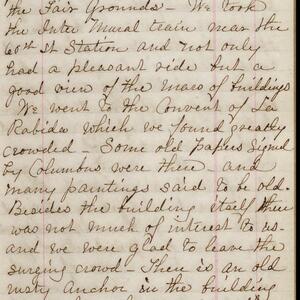 the Fair Grounds – We took
the Inter Mural train near the
60th St Station and not only
had a pleasant ride but a
good view of the Mass of buildings
We went to the Convent of La
Rabida which we found greatly
crowded – Some old papers signed
by Columbus were there – and
many paintings said to be old.
Besides the building itself there
was not much of interest to us –
and we were glad to leave the
surging crowd – There is an old
rusty Anchor in the building